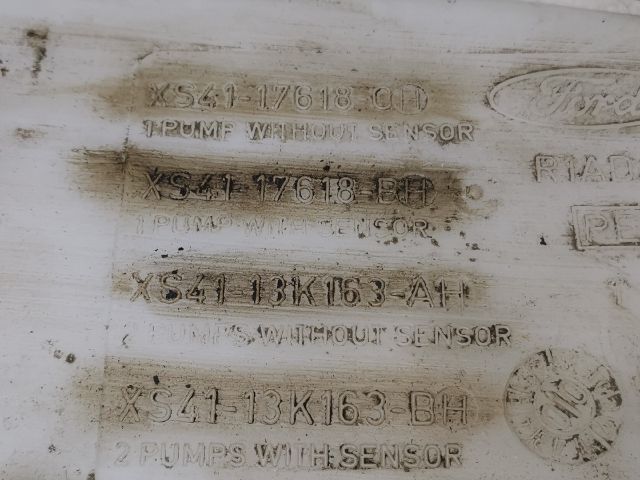 XS41-17618-CH
1 PUMP WITHOUT SENSOR
XS41-17618-BH
1 PUMP WITH SENSOR
XS41-13K163-AH
2 PUMPS WITHOUT SENSOR
XS41-13K163-BH
2 PUMPS WITH SENSOR
Ford
PE